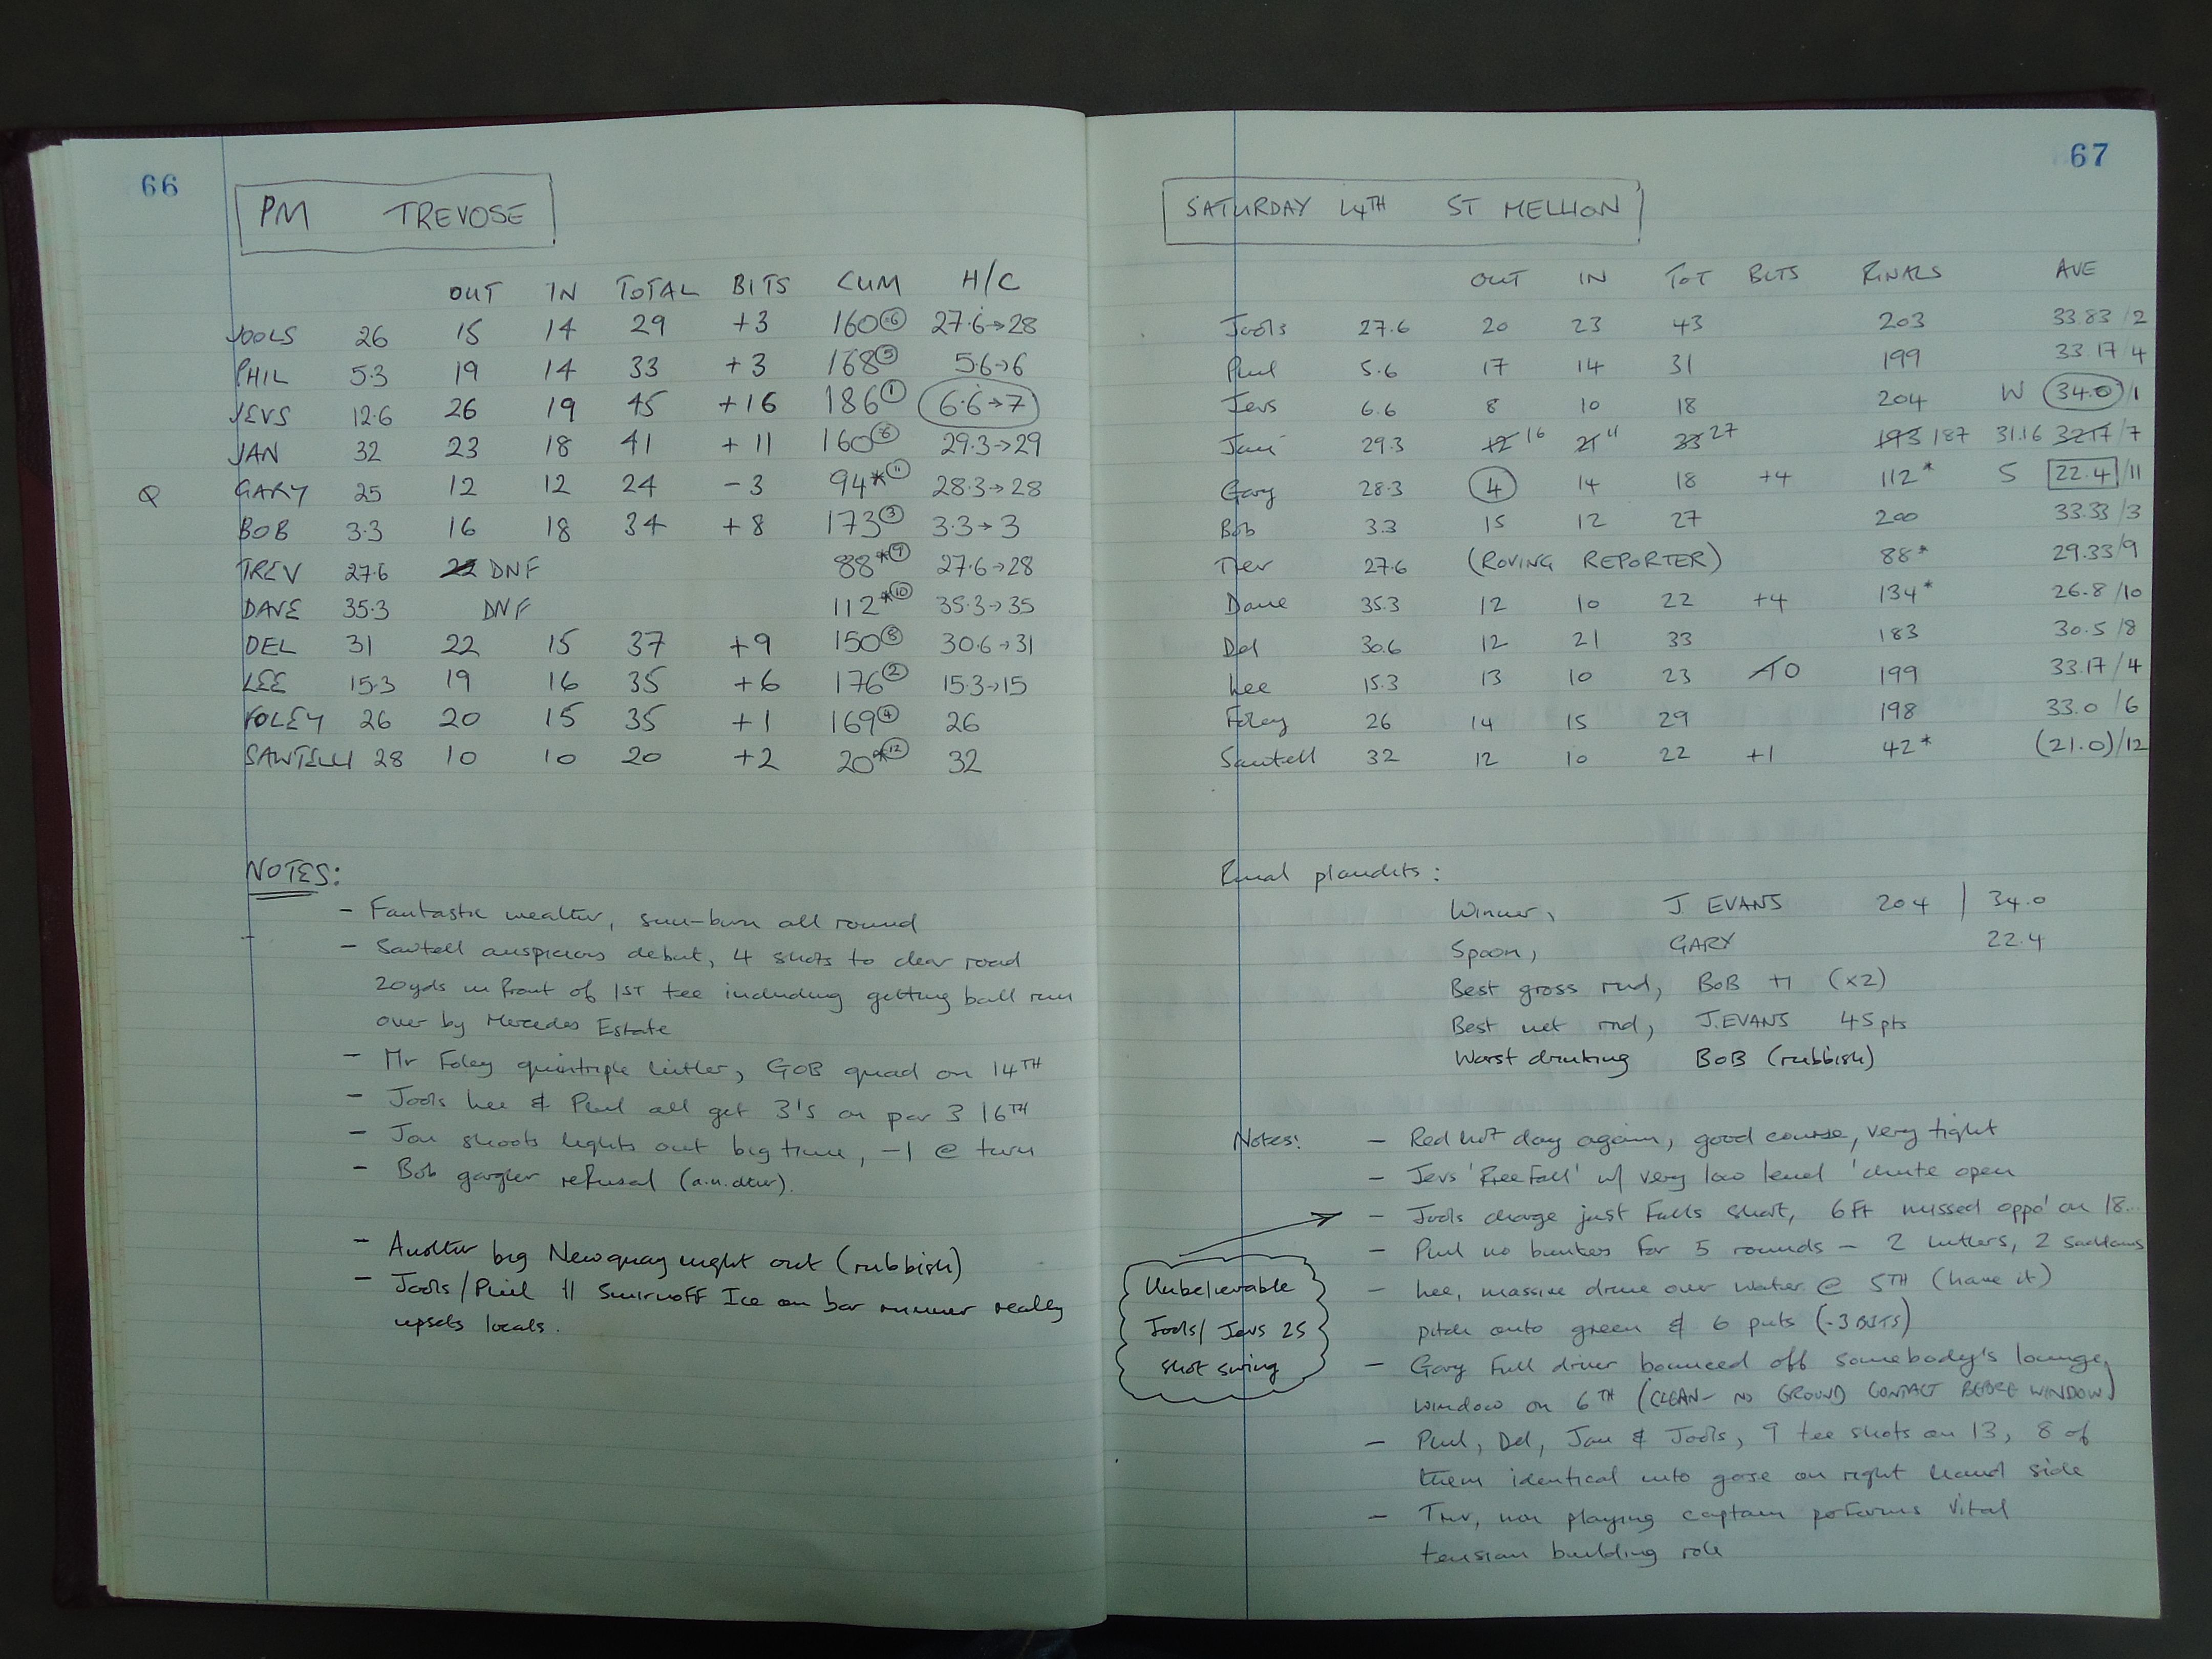 66
PM TREVOSE
OUT IN TOTAL BITS CUM H/C
JOOLS 26 15 14 29 +3 160 6 27.6→28
PHIL 5.3 19 14 33 +3 168 5 5.6→6
JEVS 12.6 26 19 45 +16 186 1 6.6→7
JAN 32 23 18 41 +11 160 6 29.3→29
Q GARY 25 12 12 24 -3 94* 11 28.3→28
BOB 3.3 16 18 34 +8 173 3 3.3→3
TREV 27.6 22 DNF 88* 9 27.6→28
DAVE 35.3 DNF 112* 10 35.3→35
DEL 31 22 15 37 +9 150 8 30.6→31
LEE 15.3 19 16 35 +6 176 2 15.3→15
FOLEY 26 20 15 35 +1 169 4 26
SAWTELL 28 10 10 20 +2 20* 12 32
NOTES:
- Fantastic weather, sun-burn all round
- Sawtell auspicious debut, 4 shots to clear road
20yds in front of 1ST tee including getting ball run
over by Mercedes Estate
- Mr Foley quintriple hitler, GOB quad on 14TH
- Jools Lee & Phil all get 3's on par 3 16TH
- Jan shoots lights out big time, -1 @ turn
- Bob gargler refusal
- Another big Newquay night out (rubbish)
- Jools/Phil 11 Smirnoff Ice on bar runner really
upsets locals.
67
SATURDAY 14TH ST MELLION
OUT IN TOT BITS FINALS AVE
Jools 27.6 20 23 43 203 33.83/2
Phil 5.6 17 14 31 199 33.17/4
Jevs 6.6 8 10 18 204 W 34.0/1
Jan 29.3 12 16 21 11 33 27 193 187 31.16 32.17/7
Gary 28.3 4 14 18 +4 112* S 22.4/11
Bob 3.3 15 12 27 200 33.33/3
Trev 27.6 (ROVING REPORTER) 88* 29.33/9
Dave 35.3 12 10 22 +4 134* 26.8/10
Del 30.6 12 21 33 183 30.5/8
Lee 15.3 13 10 23 199 33.17/4
Foley 26 14 15 29 198 33.0/6
Sawtell 32 12 10 22 +1 42* (21.0)/12
Final plaudits:
Winner, J. EVANS 204 | 34.0
Spoon, GARY 22.4
Best gross rnd, BOB +1 (x2)
Best net rnd, J. EVANS 45 pts
Worst drinking BOB (rubbish)
Notes:
- Red hot day again, good course, very tight
- Jevs 'Free Fall' w/ very low level 'chute open
- Jools charge just falls short, 6ft missed oppo' on 18..
- Phil no bunkers for 5 rounds - 2 hitlers, 2 saddams
- Lee, massive drive over water @ 5TH (have it)
pitch onto green & 6 puts (-3 BITS)
- Gary full driver bounced off somebody's lounge
window on 6TH (CLEAN - NO GROUND CONTACT BEFORE WINDOW)
- Phil, Del, Jan & Jools, 9 tee shots on 13, 8 of
them identical into gorse on right hand side
- Trev, non playing captain performs vital
tension building role
Unbelievable
Jools/Jevs 25
shot swing